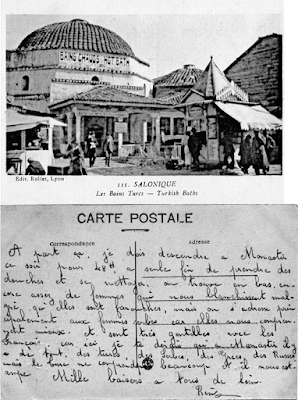 BAINS TURCS
Edit. Rollet, Lyon
111. SALONIQUE
Les Bains Turcs — Turkish Baths
CARTE POSTALE
Correspondance Adresse
A part ça je dois descendre a Monastir
ce soir pour 48H a seule fin de prendre des
douches et se nettoyer, on trouve en bas, en-
core assez de femmes qui nous blanchissent mal-
gré qu'elles sont
aux femmes serbes car elles nous compren-
nent mieux et sont très gentilles avec les
français, car ici je te dirais qu'a Monastir il y
a de tout, des turcs, des Serbes, des Grecs, des Russes
mais le tout ne comprend beaucoup et il nous est
Mille baisers a tous de loin
René